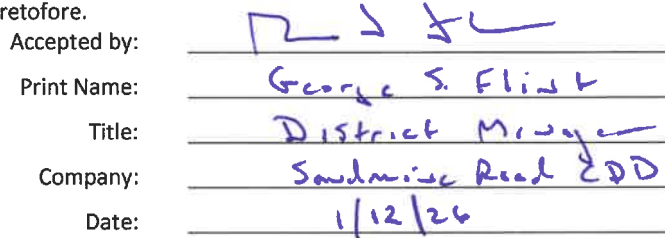 retofore.
Accepted by:
Print Name: George S. Flint
Title: District Manager
Company: Sandmine Road CDD
Date: 1/12/26